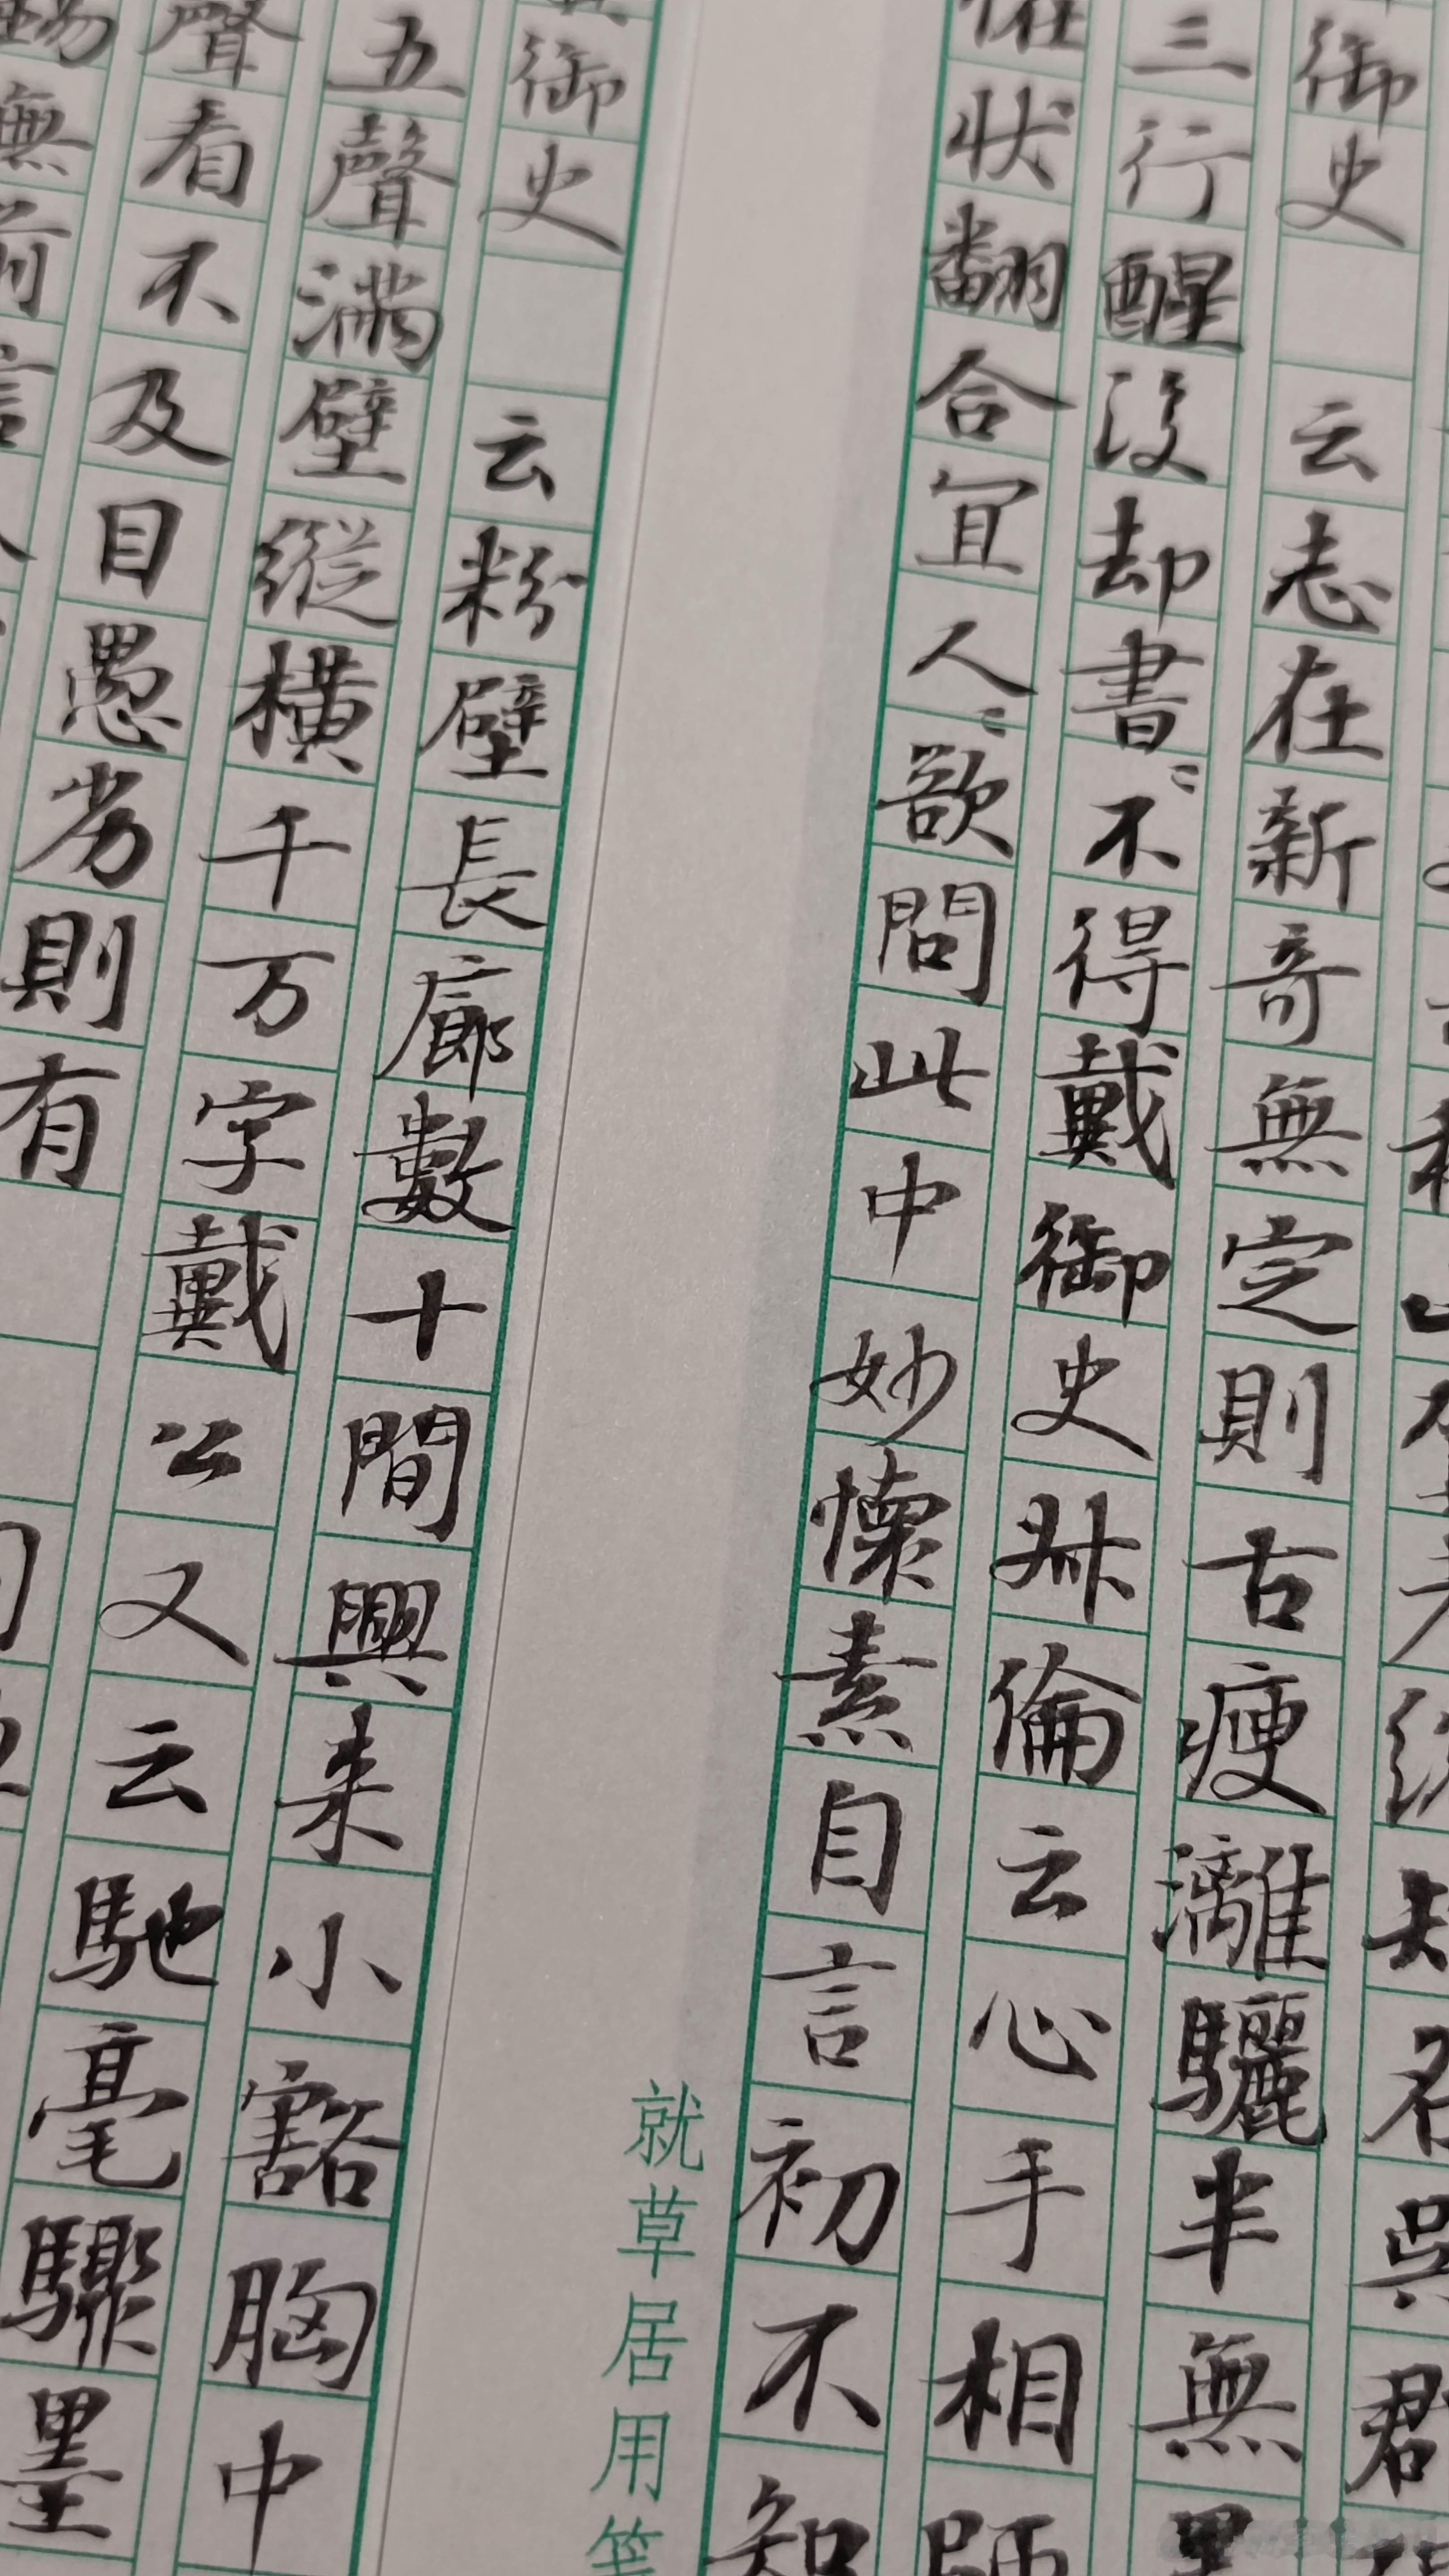 名吳君
御史 云志在新奇無定則古瘦漓驪半無墨
三行醒後却書〻不得戴御史叔倫云心手相師
怪状翻合宜人〻欲問此中妙懷素自言初不知
就草居用箋
御史 云粉壁長廊數十間興来小豁胸中
五聲滿壁縱橫千万字戴公又云馳毫驟墨
聲看不及目愚劣則有
無前言